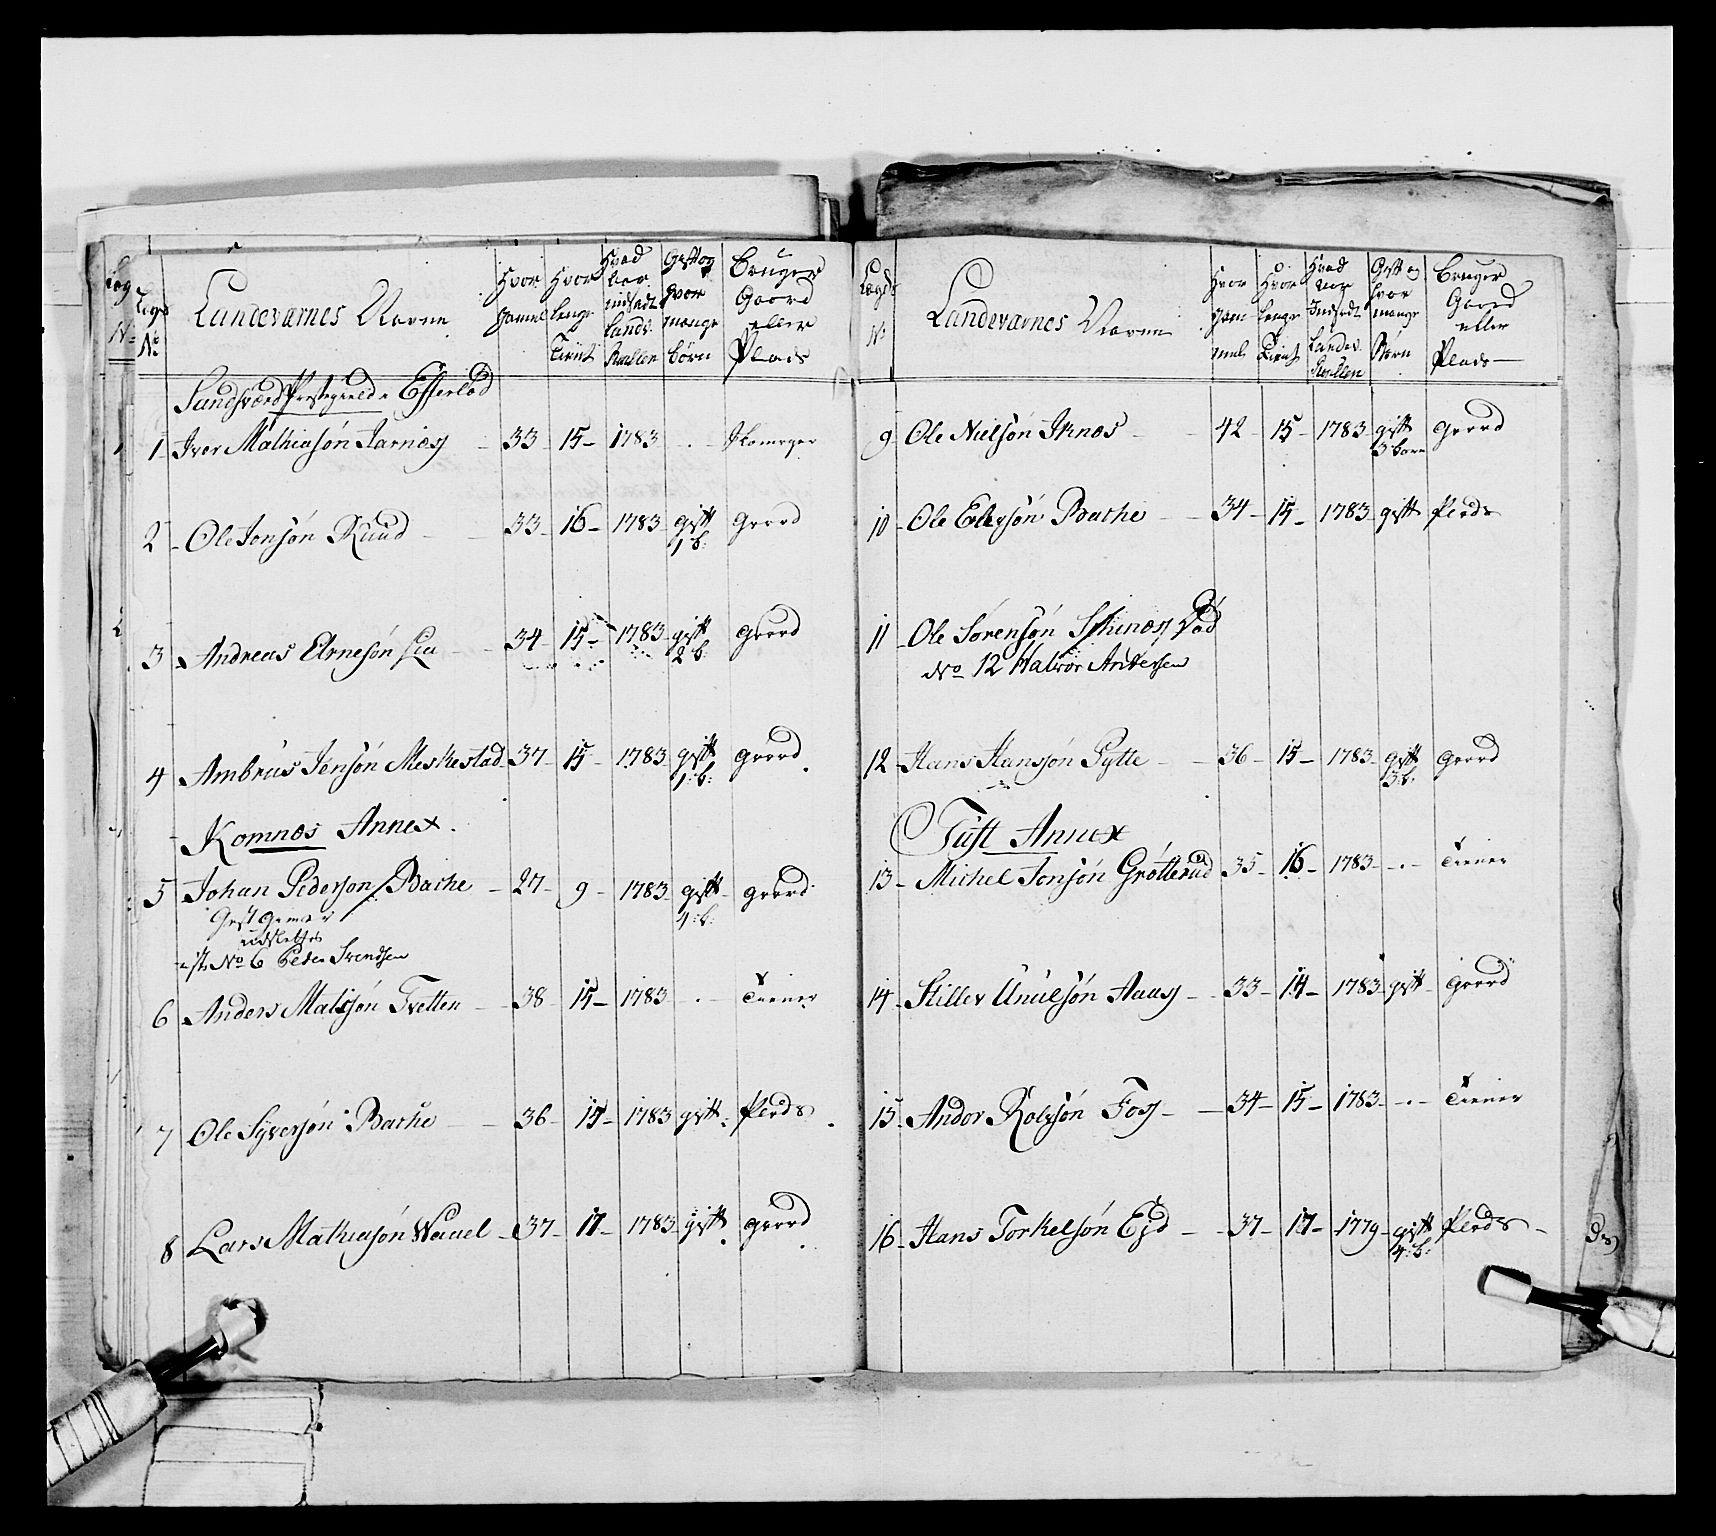 Legd No
Landevarnes Navne
Hvor gamel
Hvor lenge Tient
Hvad Aar indsadt Lands
Gift og hvor mange Børn
Bruger Gaard eller Plads
Sandsværd Præstegield Efterløb
1 Iver Mathiasøn Jarnæs 33 15 1783 - Skomager
2 Ole Jonsøn Ruud 33 16 1783 gift 1 b: gaard
3 Andreas Arnesøn Lia 34 15 1783 gift 2 b: gaard
4 Ambrus Jensøn Meskestad 37 15 1783 gift 1 b: gaard
Komnæs Annex
5 Johan Pedersøn Bache 27 9 1783 gift 4 b: gaard
udslettes
No 6 Peder Svendsen
6 Anders Matisøn Tvetten 38 15 1783 - Tiener
7 Ole Syversøn Bache 36 15 1783 gift Plads
8 Lars Mathiasøn 37 17 1783 gift gaard
Legds No
Landevarnes Navne
Hvor gam mel
Hvor lenge Tient
Hvad Aar Indsadt Landev. Rullen
Gift og hvor mange Børn
Bruger Gaard eller Plads
9 Ole Nielsøn 42 15 1783 gift 3 børn gaard
10 Ole Bache 34 15 1783 gift Plads
11 Ole Sørensøn Skinæs Død
No 12 Halvor Andersen
12 Hans Hansøn Pytte 36 15 1783 gift 3 b: gaard
Tuft Annex
13 Michel Jonsøn Grøtterud 35 16 1783 - Tiener
14 Stiller Aaas 33 14 1783 gift gaard
15 Andor Rolvsøn Foss 34 15 1783 - Tiener
16 Hans Torkelsøn Ejd 37 17 1779 gift 4 b: Plads